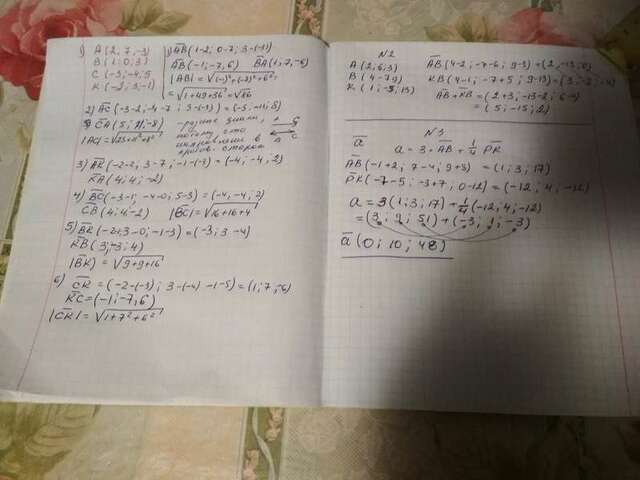 1) A(2, 7, -3)
B(1; 0; 3)
C(-3; -4; 5)
K(-2; 3; -1)
1) AB(1-2; 0-7; 3-(-3))
AB(-1; -7, 6) BA(1; 7; -6)
|AB| = √(-1)²+(-7)²+6² =
= √1+49+36 = √86
2) AC(-3-2; -4-7; 3-(-3)) = (-5; -11; 8)
CA(5; 11; -8) - разные знаки,
потому что
направлены в
против. сторон
A C
3) AK(-2-2; 3-7; -1-(-3)) = (-4; -4, 2)
KA(4; 4; -2)
4) BC(-3-1; -4-0; 5-3) = (-4; -4; 2)
CB(4; 4; -2) |BC| = √16+16+4
5) BK(-2-1; 3-0; -1-3) = (-3; 3; -4)
KB(3; -3; 4)
|BK| = √9+9+16
6) CK = (-2-(-3); 3-(-4) -1-5) = (1; 7; -6)
KC = (-1; -7, 6)
|CK| = √1+7²+6²
N2
A(2; 6; 3)
B(4; -7 9)
K(1; -5; 13)
AB+KB = (2+3; -13-2; 6-4)
= (5; -15; 2)
N3
a a = 3·AB + ¼ PK
AB(-1+2; 7-4; 9+8) = (1; 3; 17)
PK(-7-5; -3+7; 0-12) = (-12; 4; -12)
a = 3(1; 3; 17) + ¼(-12; 4; -12)
= (3; 9; 51) + (-3; 1; -3)
a(0; 10; 48)